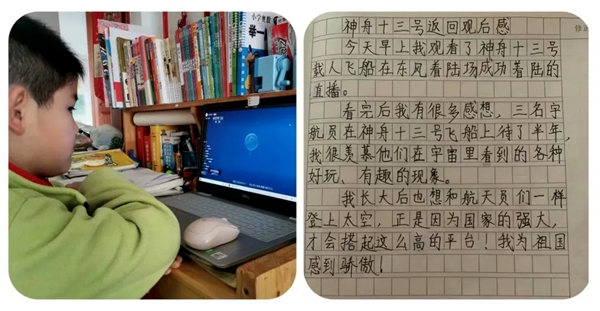 小学奥数
举一
神舟十三号返回观后感
今天早上我观看了神舟十三号
载人飞船在东风着陆场成功着陆的
直播。
看完后我有很多感想，三名宇
航员在神舟十三号飞船上待了半年，
我很羡慕他们在宇宙里看到的各种
好玩、有趣的现象。
我长大后也想和航天员们一样
登上太空，正是因为国家的强大，
才会搭起这么高的平台！我为祖国
感到骄傲！